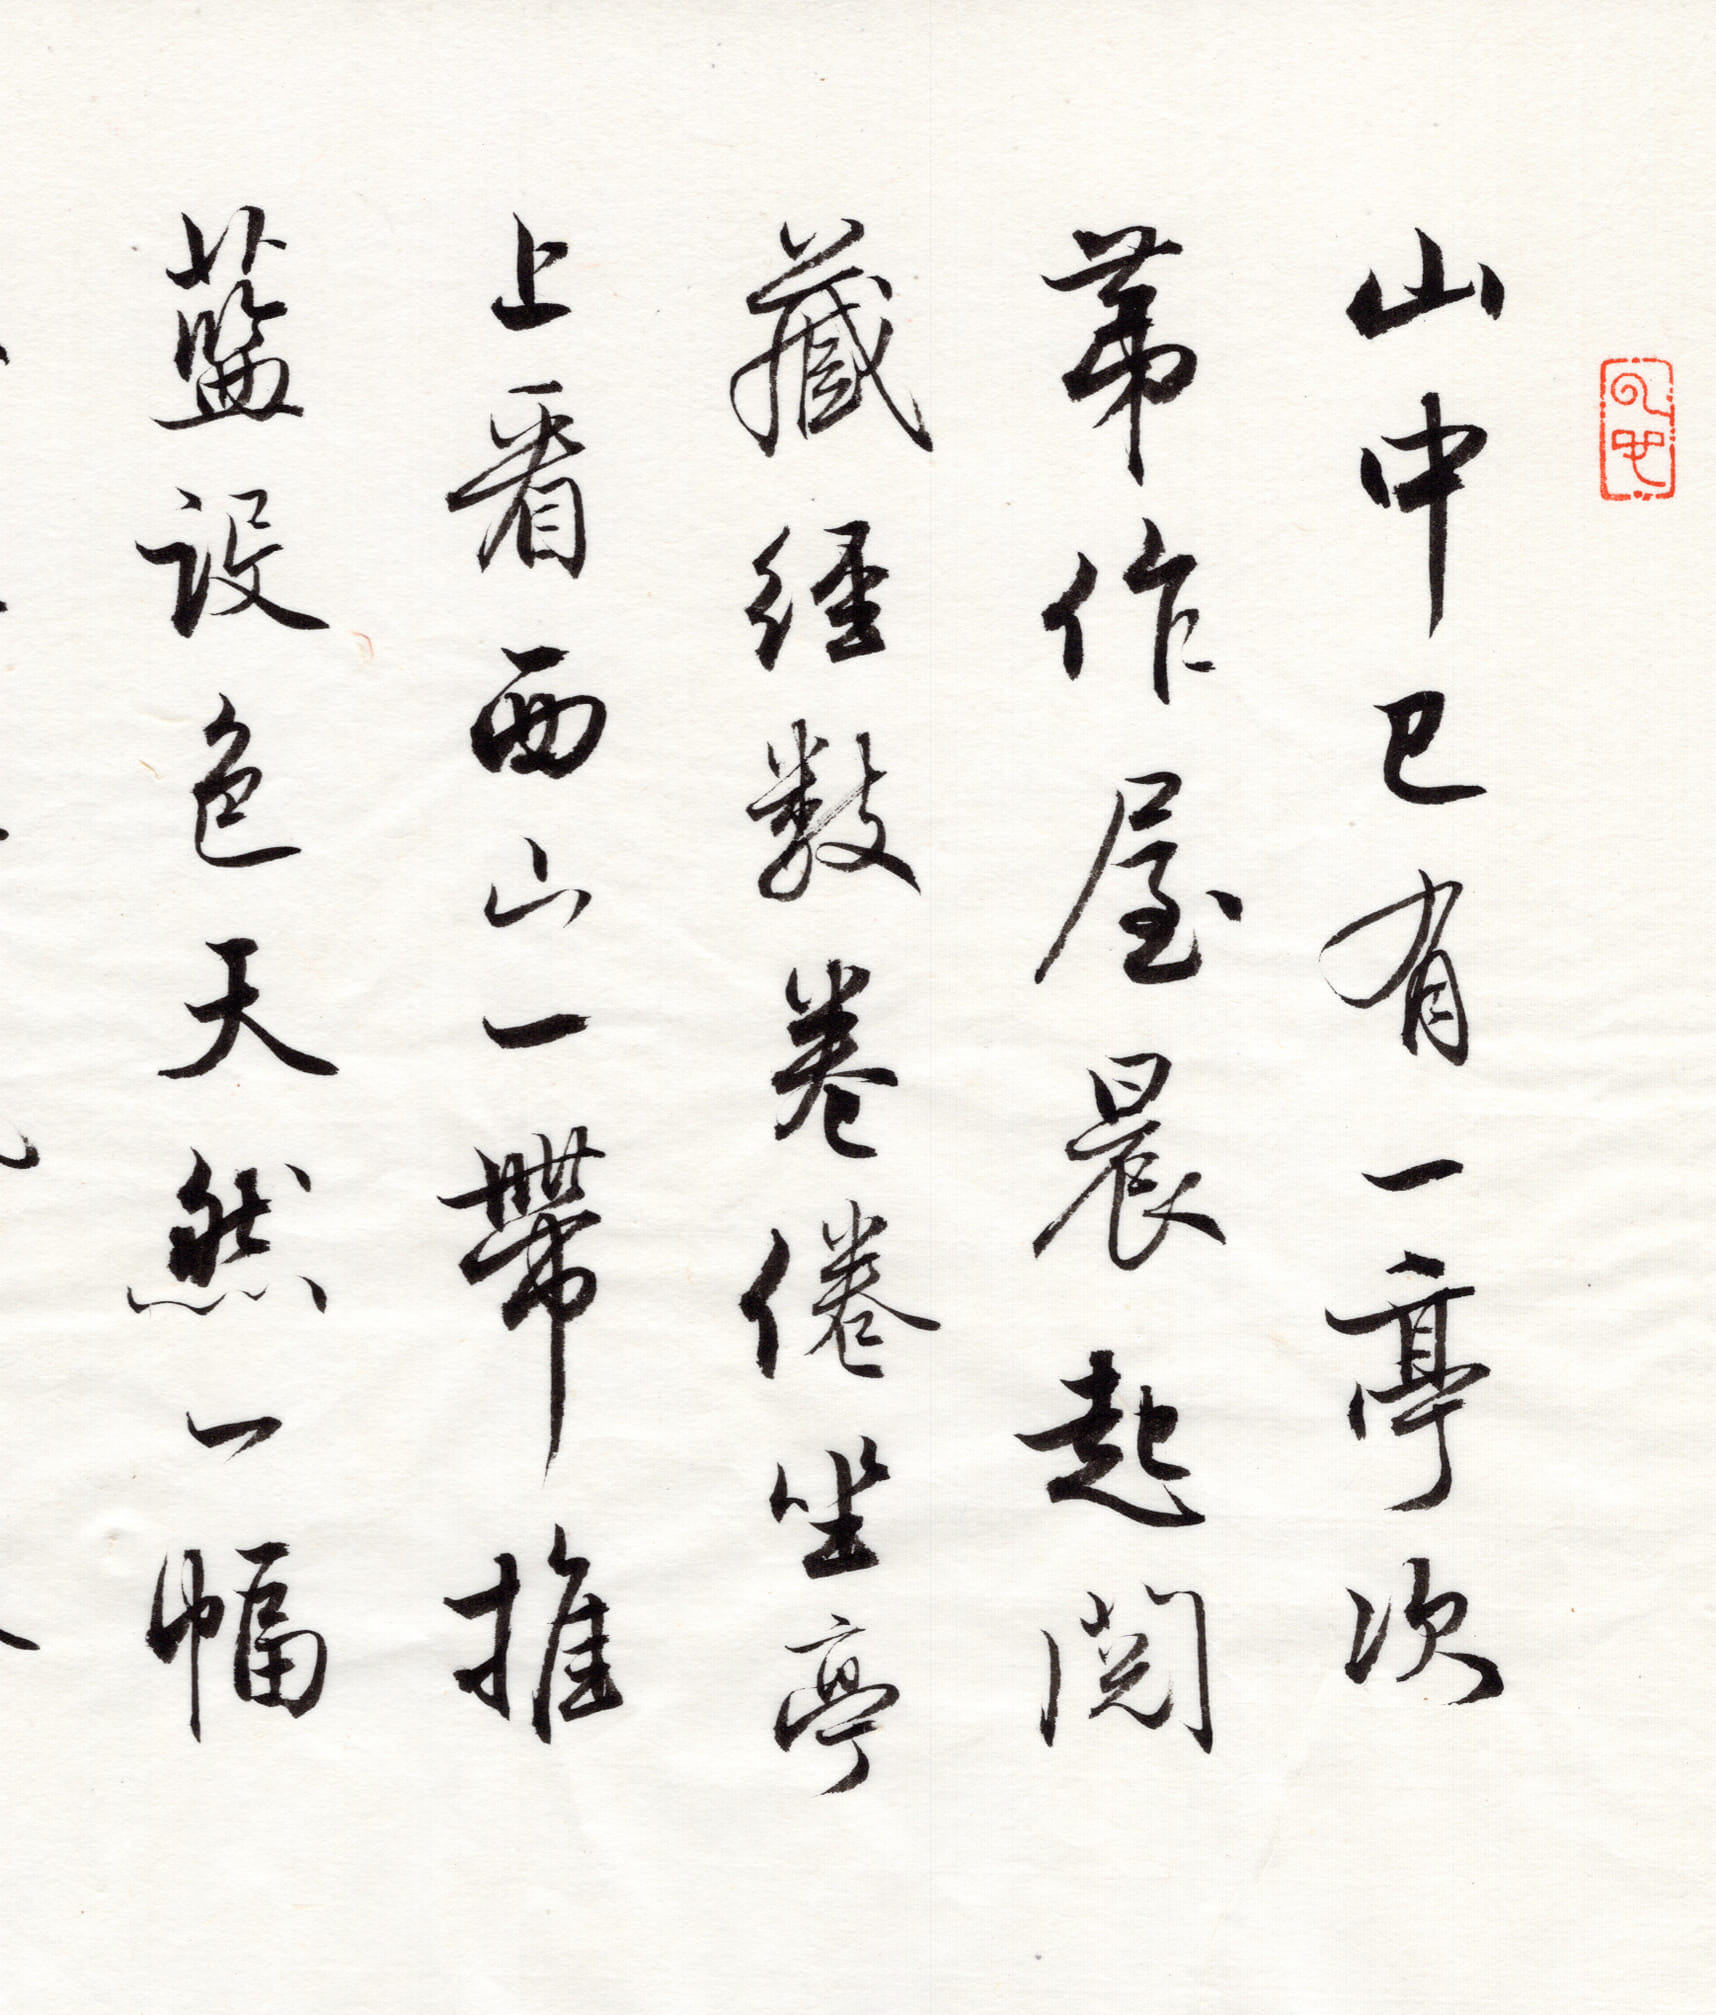 山中已有一亭次
第作屋晨起閱
藏經數卷倦坐亭
上看西山一帶推
藍設色天然一幅